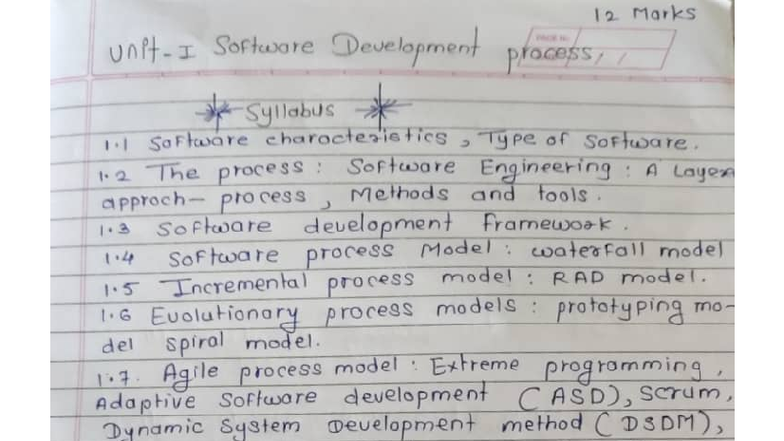 12 Marks
PAGE No.
Unit-I Software Development process,
Syllabus
1.1 Software characteristics, Type of Software.
1.2 The process: Software Engineering: A Layer
approch- process, Methods and tools.
1.3 Software development framework.
1.4 Software process Model: waterfall model
1.5 Incremental process model: RAD model.
1.6 Evolutionary process models: prototyping mo-
del spiral model.
1.7. Agile process model: Extreme programming,
Adaptive Software development (ASD), Scrum,
Dynamic System Development method (DSDM),